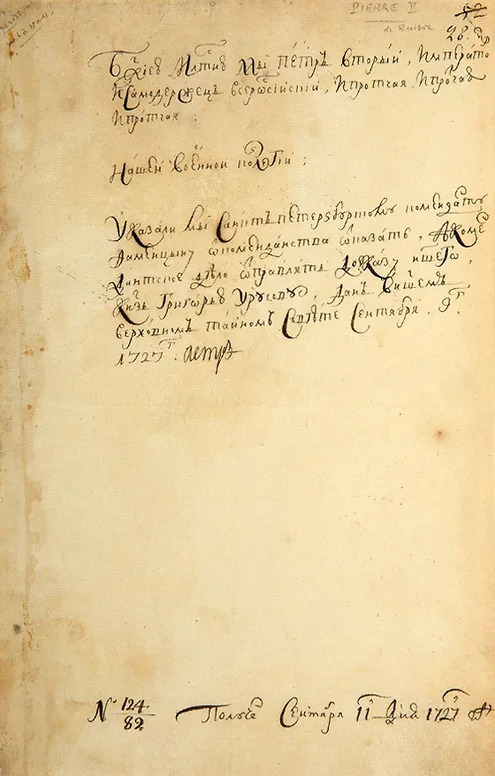 PIERRE II
de Russie
52
28.
Бжіею Млтию Мы ПЕТРЪ Вторыи, Императо
ИСамодержецъ всеросиискии, Ипротчая, Ипротчая
Ипротчая:
Нашей Военной колегіи:
Указали мы Санктъпетербургскому коменданту
Фаминцыну ѿкомендантства ѿказать, АКоме
дантское дѣло ѿправлять доуказу нашего,
Кнзь Григорью Урусову, Данъ Внашемъ
верховномъ таиномъ Совѣте Сентября. 9г.
1727г. петръ
№ 124
82
Получе Сентября 11 Дня 1727